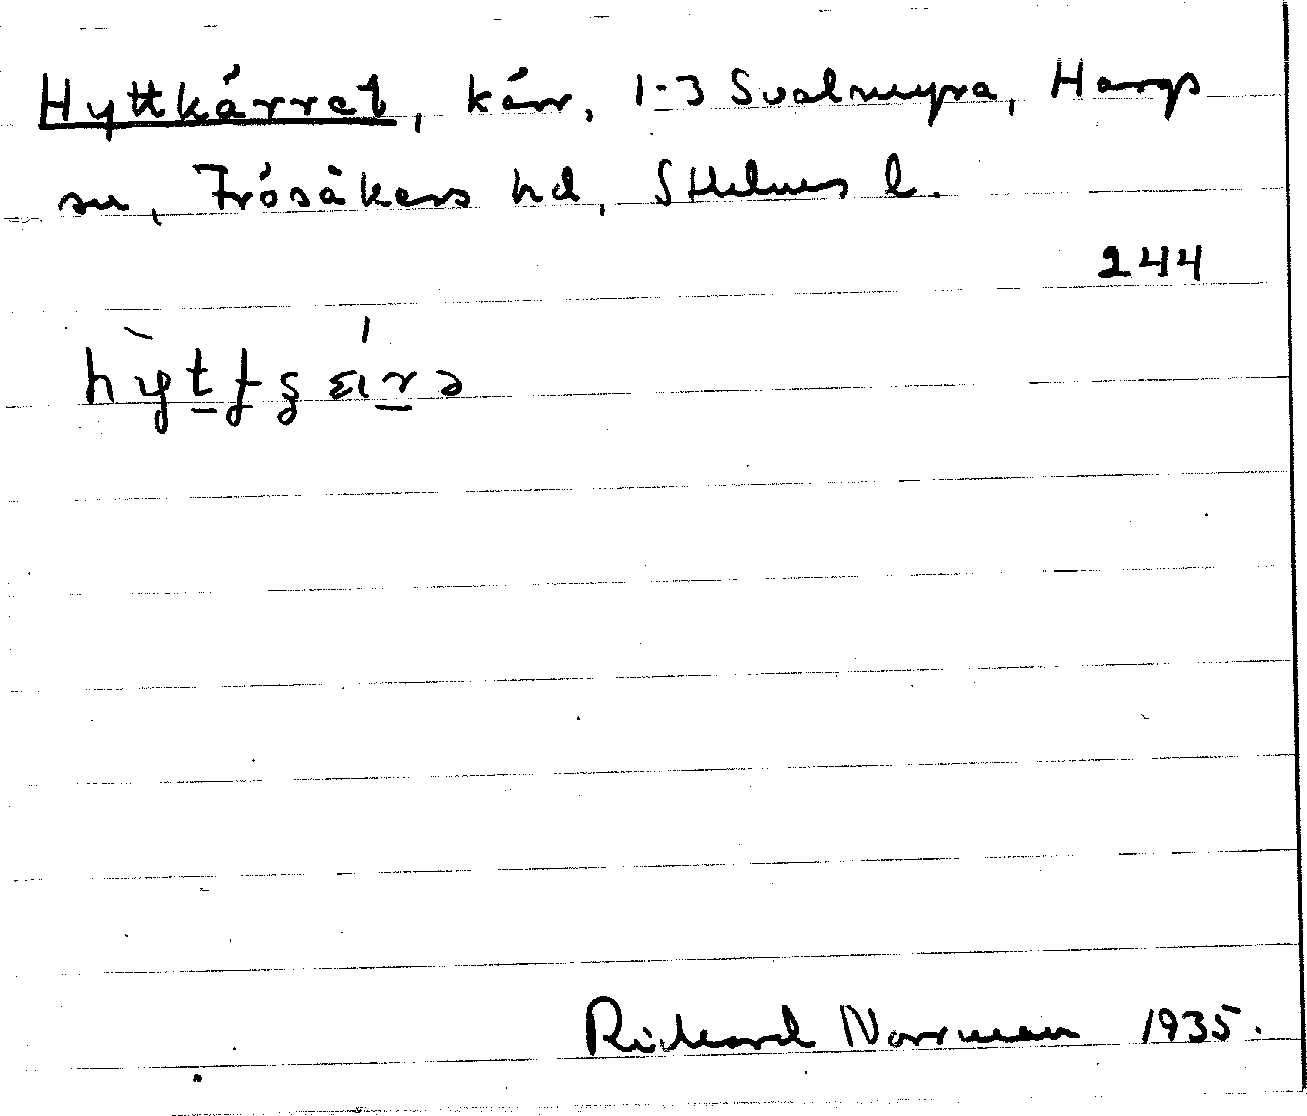 Hyttkärret, kärr, 1-3 Svalmyra, Hargs
sn, Frösåkers hd, Sthlms l.
244
Rickard Norrman 1935.